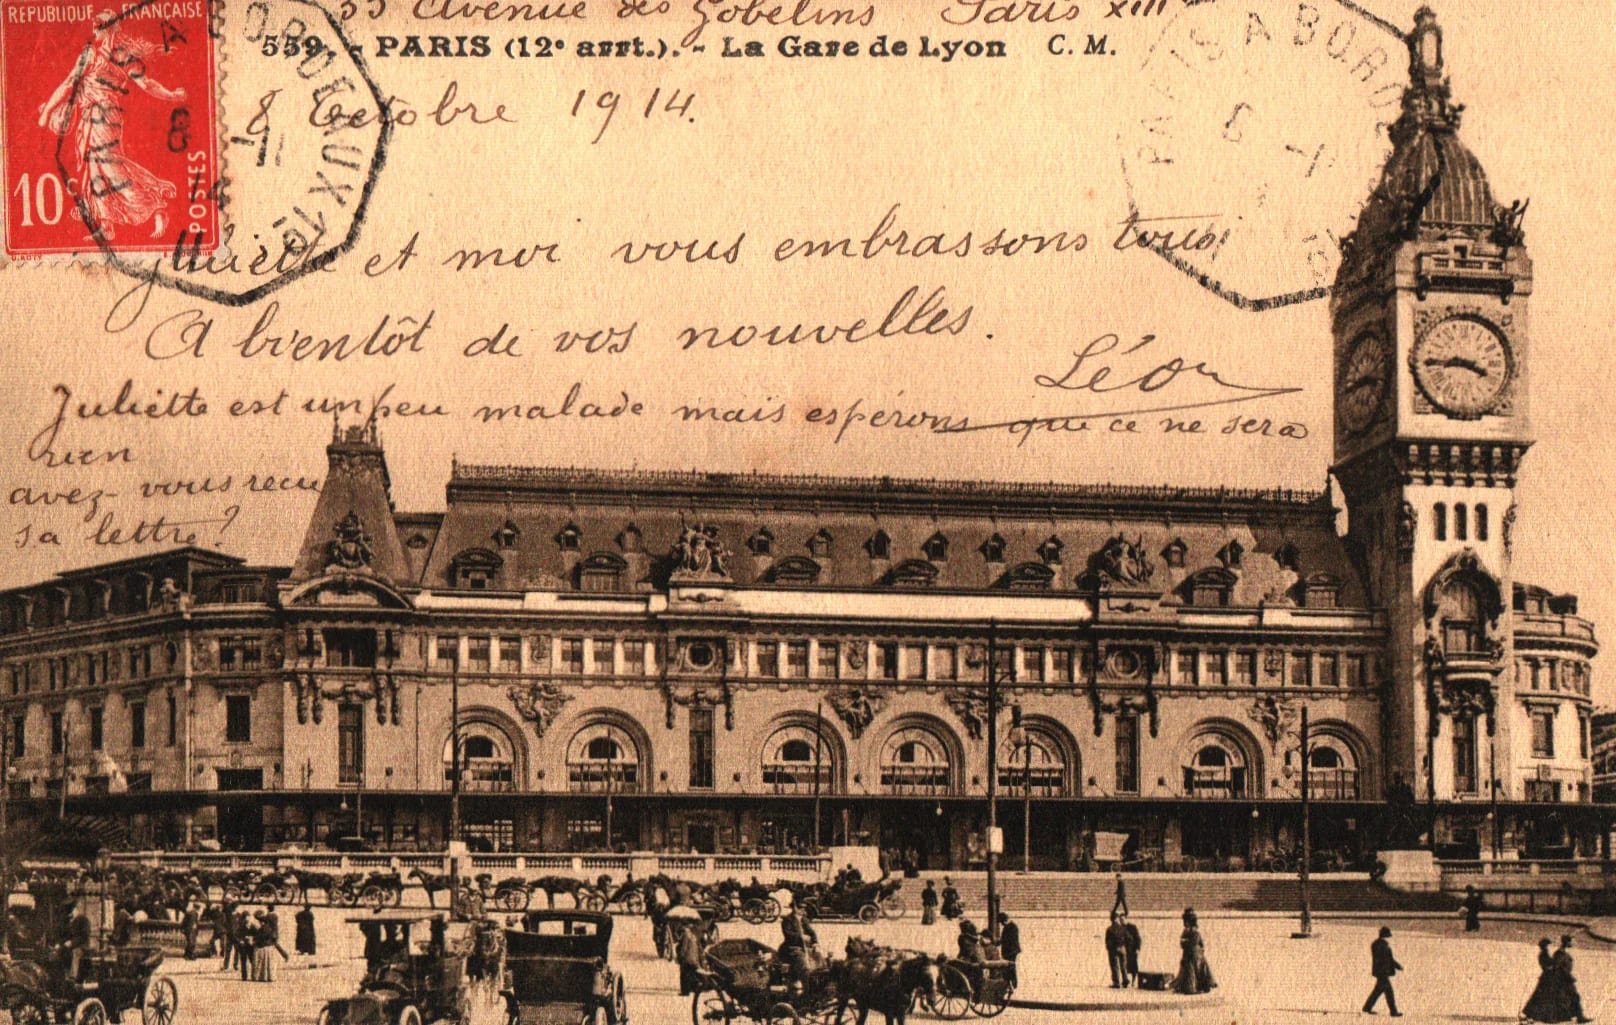 33 Avenue des Gobelins Paris XIII
559. - PARIS (12e arrt.). - La Gare de Lyon C. M.
REPUBLIQUE FRANÇAISE
10c
POSTES
PARIS A BORDEAUX 1o
8 -11
14
PARIS A BORDE
8 -11
8 Octobre 1914.
Juliette et moi vous embrassons tous
A bientôt de vos nouvelles.
Léon
Juliette est un peu malade mais espérons que ce ne sera
rien
avez-vous recu
sa lettre?